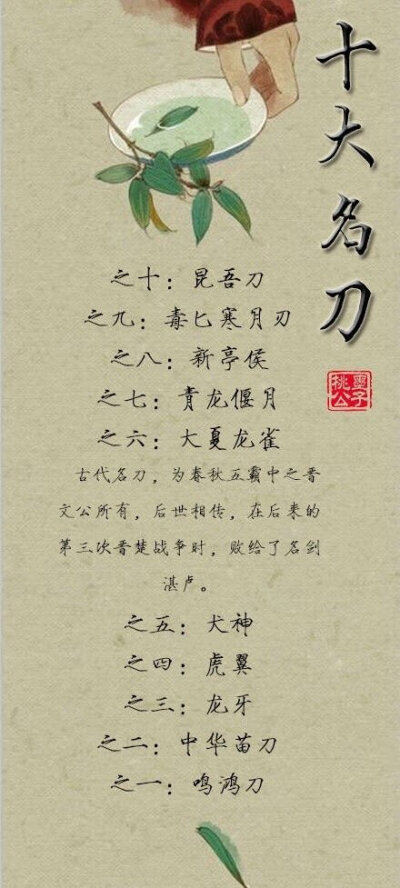 十大名刀
之十：昆吾刀
之九：毒匕寒月刃
之八：新亭侯
之七：青龙偃月
之六：大夏龙雀
古代名刀，为春秋五霸中之晋
文公所有，后世相传，在后来的
第三次晋楚战争时，败给了名剑
湛卢。
之五：犬神
之四：虎翼
之三：龙牙
之二：中华苗刀
之一：鸣鸿刀
墨子
桃公